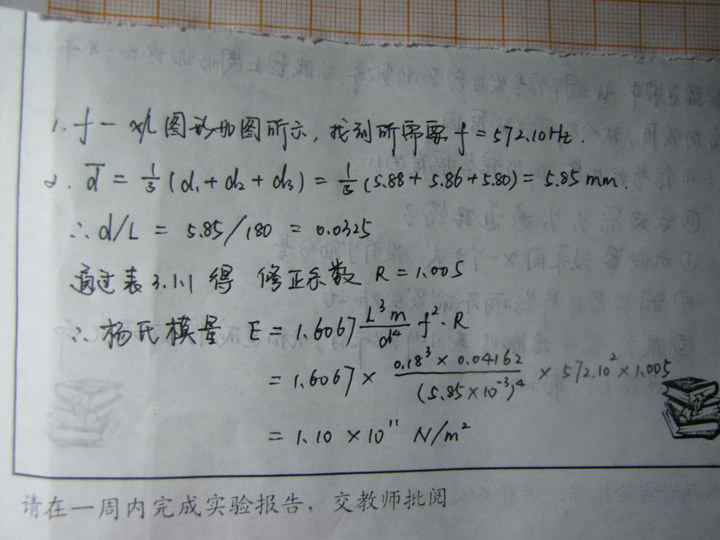 1. f — x/L 图形如图所示, 找到所需要 f = 572.10Hz.
2. d̅ = 1/3 (d₁ + d₂ + d₃) = 1/3 (5.88 + 5.86 + 5.80) = 5.85 mm.
∴ d/L = 5.85/180 = 0.0325
通过表3.1.1 得 修正系数 R = 1.005
∴ 杨氏模量 E = 1.6067 L³m/d⁴ f² · R
= 1.6067 × 0.18³ × 0.04162/(5.85 × 10⁻³)⁴ × 572.10² × 1.005
= 1.10 × 10¹¹ N/m²
请在一周内完成实验报告，交教师批阅